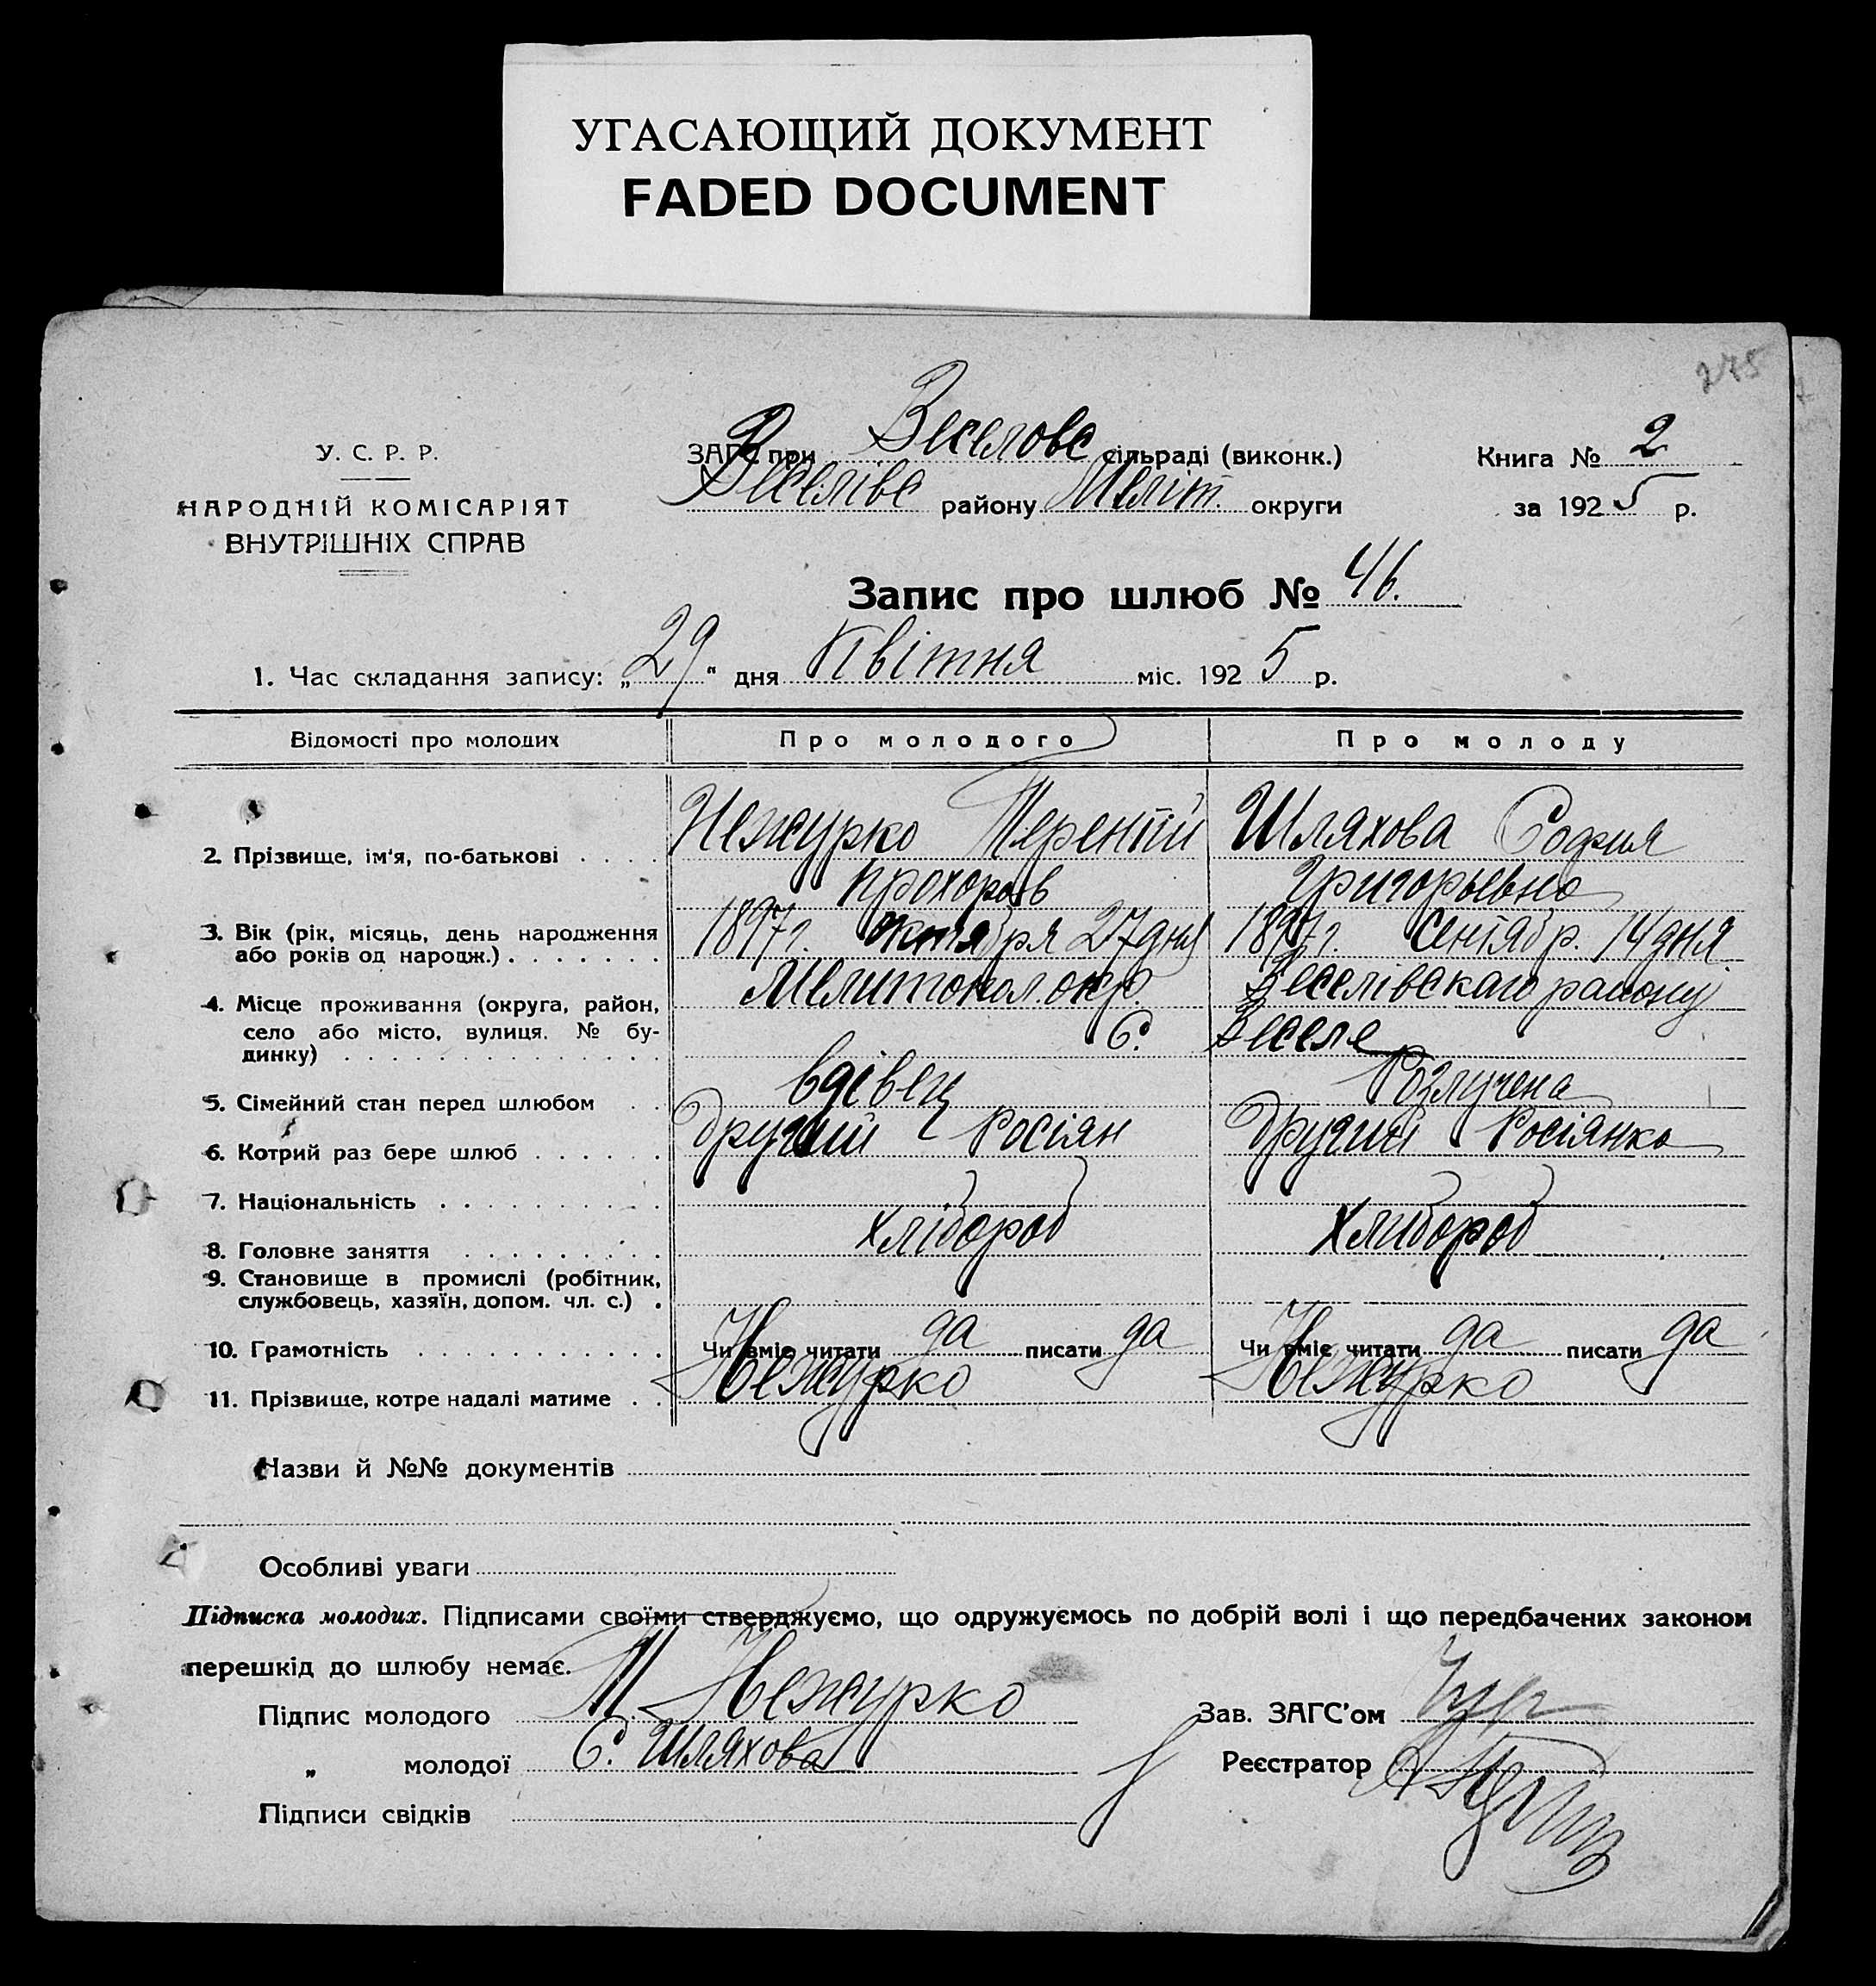 УГАСАЮЩИЙ ДОКУМЕНТ
FADED DOCUMENT
275
У. С. Р. Р.
НАРОДНІЙ КОМІСАРІЯТ
ВНУТРІШНІХ СПРАВ
ЗАГС при Веселовс сільраді (виконк.)
Веселівс району Меліт. округи
Книга № 2
за 1925 р.
Запис про шлюб № 46.
1. Час складання запису: „29" дня Квітня міс. 1925 р.
Відомості про молодих Про молодого Про молоду
2. Прізвище, ім'я, по-батькові . . . . Нежурко Терентій Шляхова София
Прохоров Григорьевна
3. Вік (рік, місяць, день народження 1897г. октября 27дня 1897г. Сентябр. 14дня.
або років од народж.) . . . . . . .
4. Місце проживання (округа, район, Мелитопол. окр. Веселівскаго району
село або місто, вулиця. № бу- С. Веселе
динку) . . . . . . . . . . . . . .
5. Сімейний стан перед шлюбом . . вдівец Розлучена
6. Котрий раз бере шлюб . . . . . . другий Росіян другий Росіянка
7. Національність . . . . . . . . . .
8. Головне заняття . . . . . . . . . хлібороб Хлибороб
9. Становище в промислі (робітник,
службовець, хазяїн, допом. чл. с.) .
10. Грамотність . . . . . . . . . . . Чи вміє читати да писати да Чи вміє читати да писати да
11. Прізвище, котре надалі матиме . . Нежурко Нежурко
Назви й №№ документів
Особливі уваги
Підписка молодих. Підписами своїми стверджуємо, що одружуємось по добрій волі і що передбачених законом
перешкід до шлюбу немає.
Підпис молодого Т. Нежурко Зав. ЗАГС'ом
„ молодої С. Шляхова Реєстратор
Підписи свідків